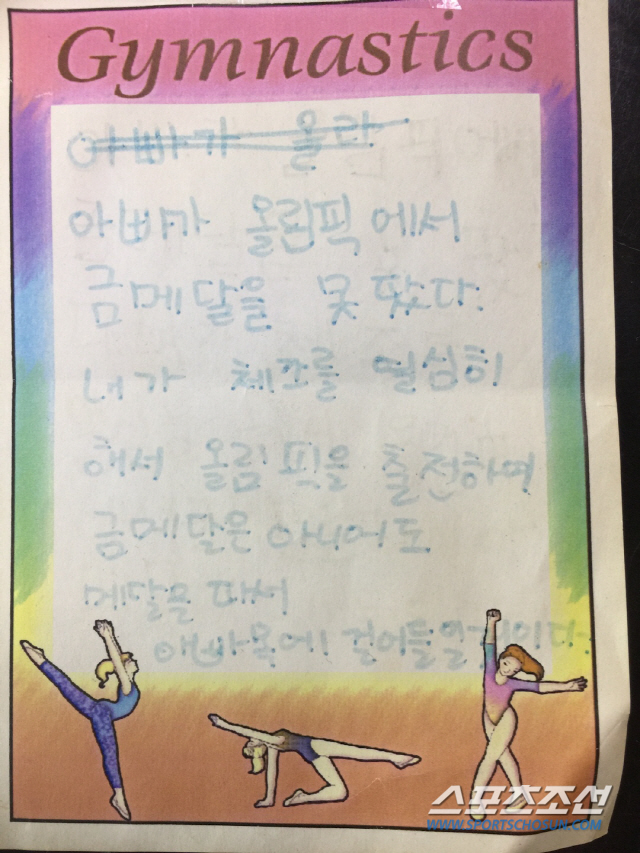 Gymnastics
아빠가 올라
아빠가 올림픽에서
금메달을 못 땄다.
내가 체조를 열심히
해서 올림픽을 출전하며
금메달은 아니어도
메달을 따서
아빠목에 걸어들일것이다.
스포츠조선
WWW.SPORTSCHOSUN.COM